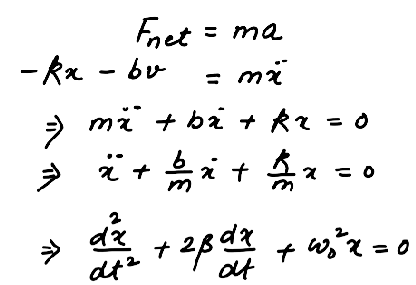 F_net = ma
-kx - bv = mẍ
⇒ mẍ + bẋ + kx = 0
⇒ ẍ + b/m ẋ + k/m x = 0
⇒ d²x/dt² + 2β dx/dt + ω₀²x = 0